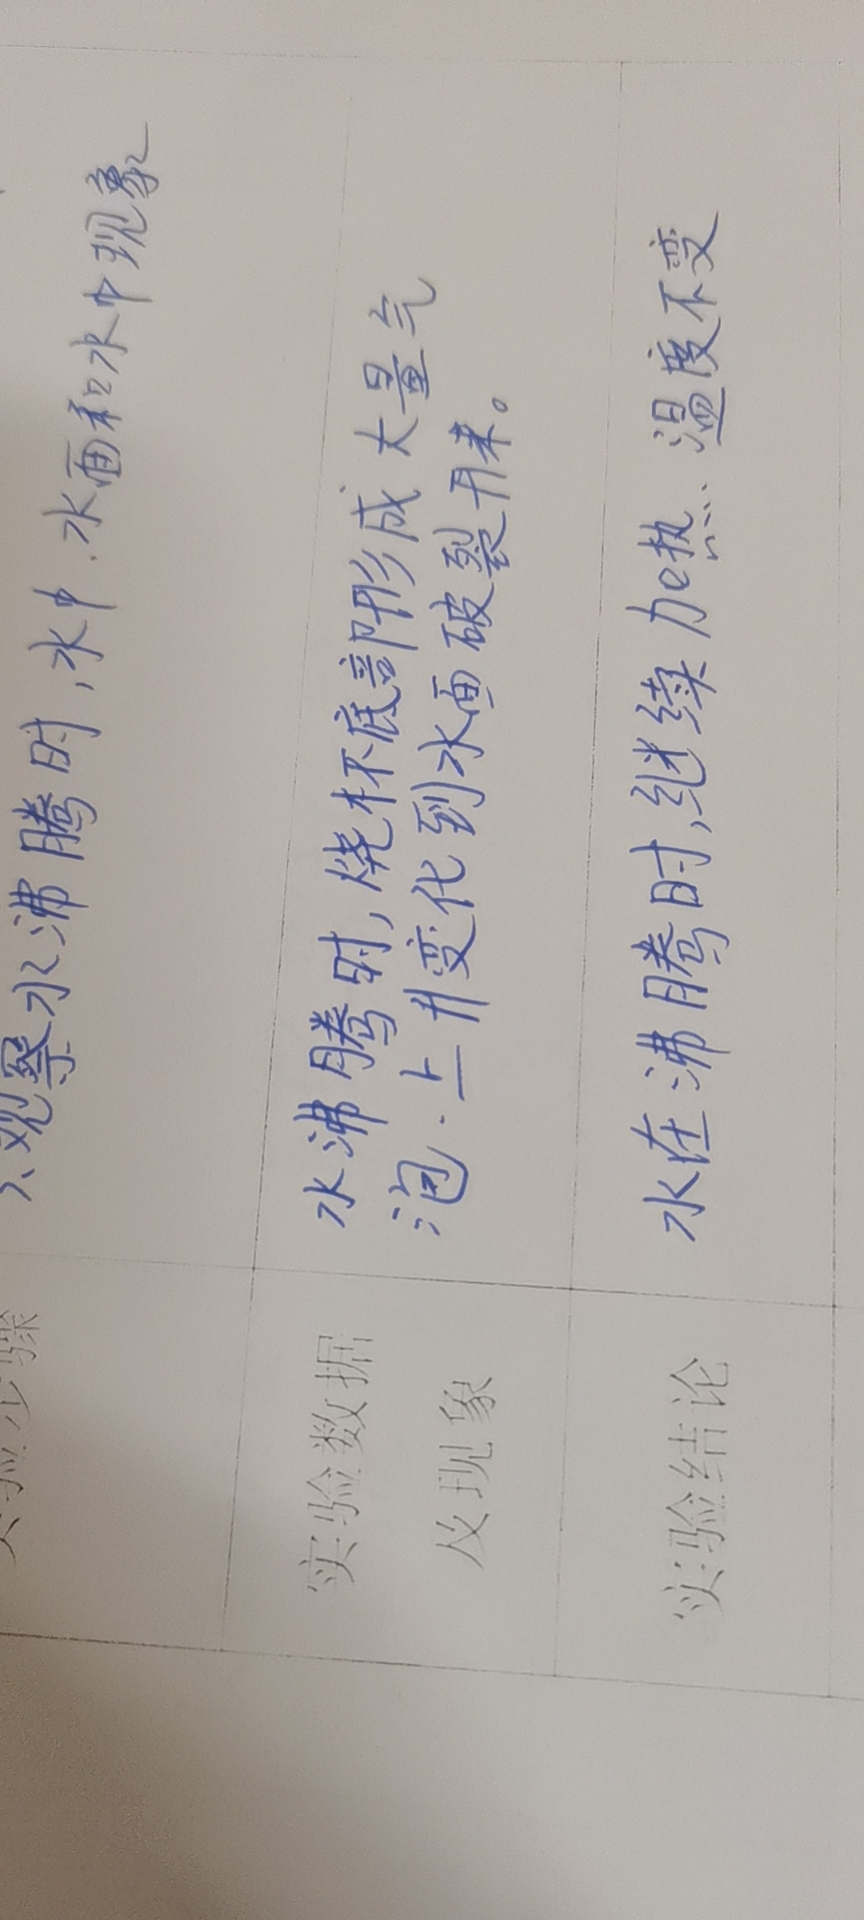 观察水沸腾时,水中.水面和水中现象
实验步骤
水沸腾时,烧杯底部形成大量气
泡.上升变化到水面破裂开来。
实验数据
及现象
水在沸腾时,继续加热.温度不变
实验结论